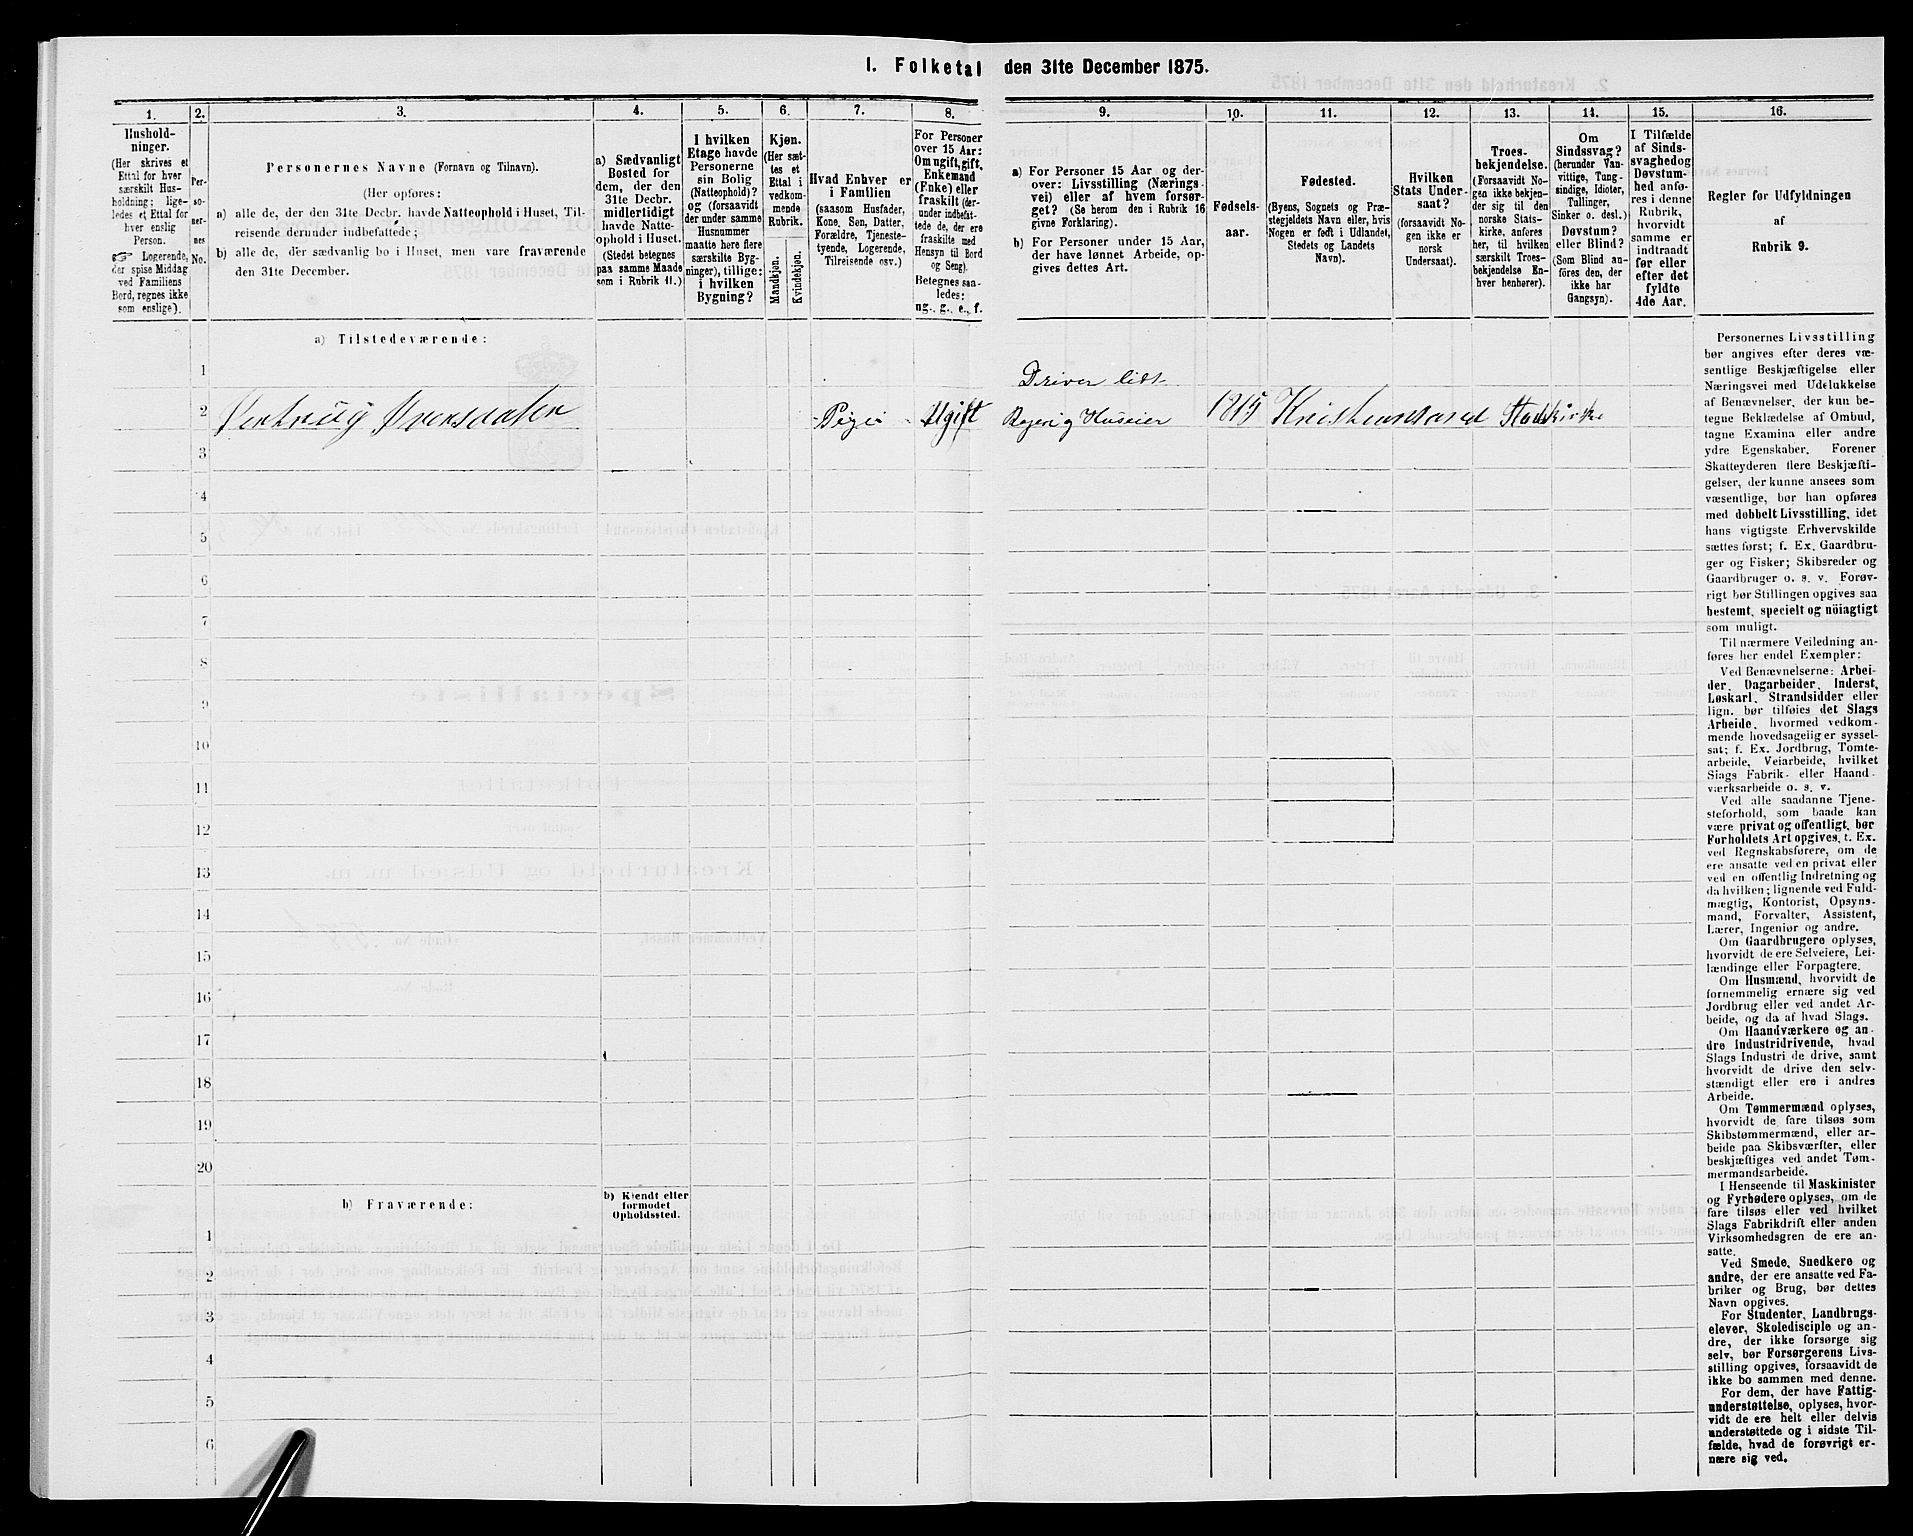 I. Folketal den 31te December 1875.
1.
Hushold-
ninger.
(Her skrives et
Ettal for hver
særskilt Hus-
holdning; lige-
ledes et Ettal for
hver enslig
Person.
☞ Logerende,
der spise Middag
ved Familiens
Bord, regnes ikke
som enslige).
2.
Per-
so-
ner-
nes
No.
3.
Personernes Navne (Fornavn og Tilnavn).
(Her opføres:
a) alle de, der den 31te Decbr. havde Natteophold i Huset, Til-
reisende derunder indbefattede;
b) alle de, der sædvanlig bo i Huset, men vare fraværende
den 31te December.
4.
a) Sædvanligt
Bosted for
dem, der den
31te Decbr.
midlertidigt
havde Natte-
ophold i Huset.
(Stedet betegnes
paa samme Maade
som i Rubrik 11.)
5.
I hvilken
Etage havde
Personerne
sin Bolig
(Natteophold)?
og (forsaavidt
der under samme
Husnummer
maatte høre flere
særskilte Byg-
ninger), tillige:
i hvilken
Bygning?
6.
Kjøn.
(Her sæt-
tes et
Ettal i
vedkom-
mende
Rubrik.
Mandkjøn.
Kvindekjøn.
7.
Hvad Enhver er
i Familien
(saasom Husfader,
Kone, Søn, Datter,
Forældre, Tjeneste-
tyende, Logerende,
Tilreisende osv.)
8.
For Personer
over 15 Aar:
Om ugift, gift,
Enkemand
(Enke) eller
fraskilt (der-
under indbefat-
tede de, der ere
fraskilte med
Hensyn til Bord
og Seng).
Betegnes saa-
ledes:
ug., g., e., f.
9.
a) For Personer 15 Aar og der-
over: Livsstilling (Nærings-
vei) eller af hvem forsør-
get? (Se herom den i Rubrik 16
givne Forklaring).
b) For Personer under 15 Aar,
der have lønnet Arbeide, op-
gives dettes Art.
10.
Fødsels-
aar.
11.
Fødested.
(Byens, Sognets og Præ-
stegjeldets Navn eller, hvis
Nogen er født i Udlandet,
Stedets og Landets
Navn).
12.
Hvilken
Stats Under-
saat?
(forsaavidt No-
gen ikke er
norsk
Undersaat).
13.
Troes-
bekjendelse.
(Forsaavidt No-
gen ikke bekjen-
der sig til den
norske Stats-
kirke, anføres
her, til hvilken
Troes-
bekjendelse En-
hver henhører).
14.
Om
Sindssvag?
(herunder Van-
vittige, Tung-
sindige, Idioter,
Tullinger,
Sinker o. desl.)
Døvstum?
eller Blind?
(Som Blind an-
føres den, der
ikke har
Gangsyn).
15.
I Tilfælde
af Sinds-
svaghed og
Døvstum-
hed anfø-
res i denne
Rubrik,
hvorvidt
samme er
indtraadt
før eller
efter det
fyldte
4de Aar.
16.
Regler for Udfyldningen
af
Rubrik 9.
a) Tilstedeværende:
1
Driver lidt
2
Pige Ugift
Huseier 1815 Kristianssand Statskirke
3
4
5
6
7
8
9
10
11
12
13
14
15
16
17
18
19
20
b) Fraværende:
b) Kjendt eller
formodet
Opholdssted.
1
2
3
4
5
6
Personernes Livsstilling
bør angives efter deres væ-
sentlige Beskjæftigelse eller
Næringsvei med Udelukkelse
af Benævnelser, der kun be-
tegne Beklædelse af Ombud,
tagne Examina eller andre
ydre Egenskaber. Forener
Skatteyderen flere Beskjæfti-
gelser, der kunne ansees som
væsentlige, bør han opføres
med dobbelt Livsstilling, idet
hans vigtigste Erhvervskilde
sættes først; f. Ex. Gaardbru-
ger og Fisker; Skibsreder og
Gaardbruger o. s. v. Forøv-
rigt bør Stillingen opgives saa
bestemt, specielt og nöiagtigt
som muligt.
Til nærmere Veiledning an-
føres her endel Exempler:
Ved Benævnelserne: Arbei-
der, Dagarbeider, Inderst,
Løskarl, Strandsidder eller
lign. bør tilføies det Slags
Arbeide, hvormed vedkom-
mende hovedsagelig er syssel-
sat; f. Ex. Jordbrug, Tomte-
arbeide, Veiarbeide, hvilket
Slags Fabrik- eller Haand-
værksarbeide o. s. v.
Ved alle saadanne Tjene-
steforhold, som baade kan
være privat og offentligt, bør
Forholdets Art opgives, f. Ex.
ved Regnskabsførere, om de
ere ansatte ved en privat eller
ved en offentlig Indretning og
da hvilken; lignende ved Fuld-
mægtig, Kontorist, Opsyns-
mand, Forvalter, Assistent,
Lærer, Ingeniør og andre.
Om Gaardbrugere oplyses,
hvorvidt de ere Selveiere, Lei-
lændinge eller Forpagtere.
Om Husmænd, hvorvidt de
fornemmelig ernære sig ved
Jordbrug eller ved andet Ar-
beide, og da af hvad Slags.
Om Haandværkere og an-
dre Industridrivende, hvad
Slags Industri de drive, samt
hvorvidt de drive den selv-
stændigt eller ere i andres
Arbeide.
Om Tømmermænd oplyses,
hvorvidt de fare tilsøs som
Skibstømmermænd, eller ar-
beide paa Skibsværfter, eller
beskjæftiges ved andet Tøm-
mermandsarbeide.
I Henseende til Maskinister
og Fyrbødere oplyses, om de
fare tilsøs eller ved hvilket
Slags Fabrikdrift eller anden
Virksomhedsgren de ere an-
satte.
Ved Smede, Snedkere og
andre, der ere ansatte ved Fa-
briker og Brug, bør dettes
Navn opgives.
For Studenter, Landbrugs-
elever, Skoledisciple og an-
dre, der ikke forsørge sig
selv, bør Forsørgerens Livs-
stilling opgives, forsaavidt de
ikke bo sammen med denne.
For dem, der have Fattig-
understøttelse, oplyses, hvor-
vidt de ere helt eller delvis
understøttede og i sidste Til-
fælde, hvad de forøvrigt er-
nære sig ved.